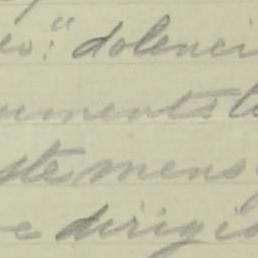 eo:" dolenci
uments te
ste mens
e dirigio